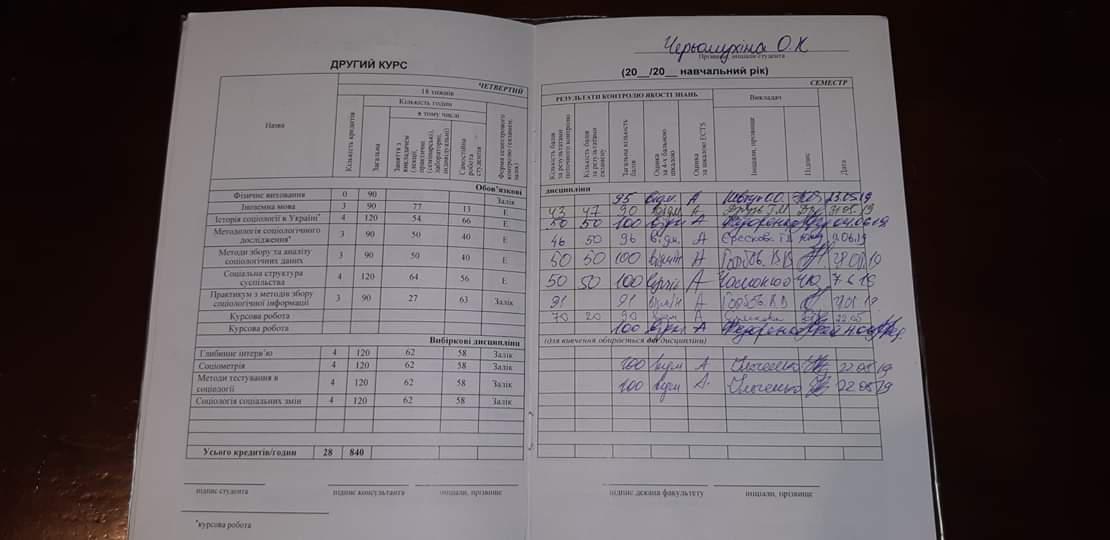 Черьомухіна О.К
Прізвище, ініціали студента
ДРУГИЙ КУРС
(20__/20__ навчальний рік)
ЧЕТВЕРТИЙ
СЕМЕСТР
Назва
18 тижнів
Кількість кредитів
Кількість годин
Загальна
в тому числі
Заняття з викладачем (лекції, практичні (семінарські), лабораторні, індивідуальні)
Самостійна робота студента
Форма семестрового контролю (екзамен, залік)
РЕЗУЛЬТАТИ КОНТРОЛЮ ЯКОСТІ ЗНАНЬ
Викладач
Кількість балів за результатами поточного контролю
Кількість балів за результатами екзамену
Загальна кількість балів
Оцінка за 4-х бальною шкалою
Оцінка за шкалою ECTS
Ініціали, прізвище
Підпис
Дата
Обов'язкові дисципліни
Фізичне виховання 0 90 Залік 95 відм. А 23.05.19
Іноземна мова 3 90 77 13 Е 43 47 90 відм А
Історія соціології в Україні* 4 120 54 66 Е 50 50 100 відм А Федоренко 04.06.19
Методологія соціологічного дослідження* 3 90 50 40 Е 46 50 96 відм. А
Методи збору та аналізу соціологічних даних 3 90 50 40 Е 50 50 100 відмін А
Соціальна структура суспільства 4 120 64 56 Е 50 50 100 А 7.6.19
Практикум з методів збору соціологічної інформації 3 90 27 63 Залік 91 91 відмін А
Курсова робота 70 20 90 відм А 22.05
Курсова робота 100 відм А Федоренко
Вибіркові дисципліни
(для вивчення обирається дві дисципліни)
Глибинне інтерв'ю 4 120 62 58 Залік 100 відм А Ільченко 22.05.19
Соціометрія 4 120 62 58 Залік
Методи тестування в соціології 4 120 62 58 Залік 100 відм А. Ільченко 22.05.19
Соціологія соціальних змін 4 120 62 58 Залік
Усього кредитів/годин 28 840
підпис студента
підпис консультанта
ініціали, прізвище
підпис декана факультету
ініціали, прізвище
*курсова робота